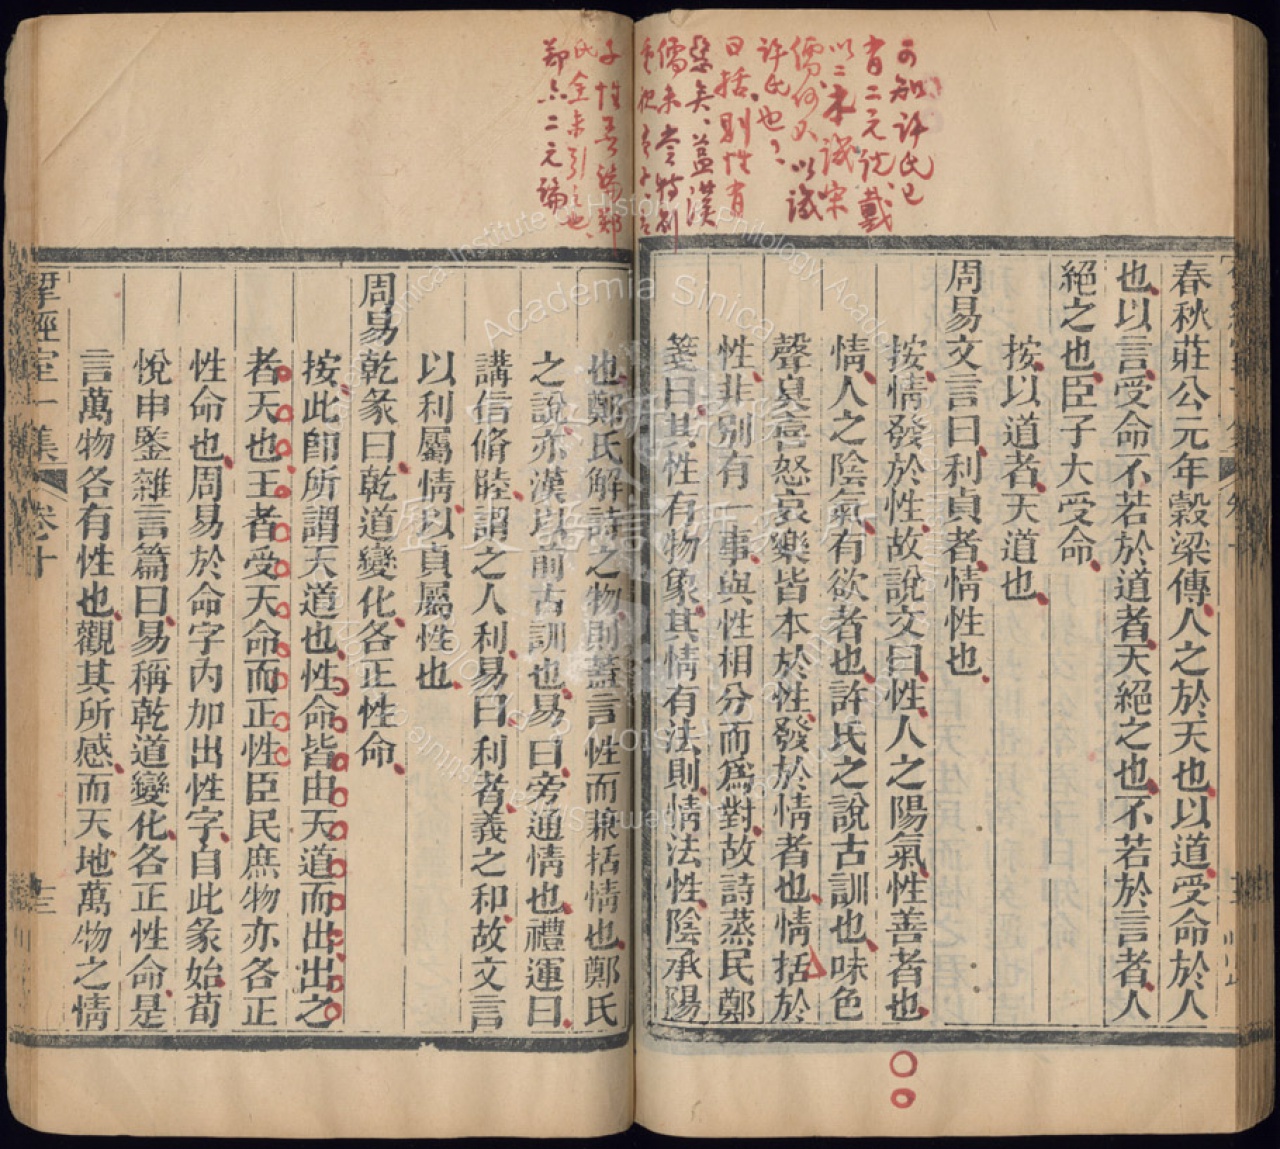 可知許氏已
有二元說、戴
以二本譏宋
儒、何不以譏
許氏也？
曰括則性有
蓋漢
儒未
子性善論鄭
氏全未引之也、
鄭亦二元論
春秋莊公元年穀梁傳人之於天也以道受命於人
也以言受命不若於道者天絕之也不若於言者人
絕之也臣子大受命
按以道者天道也
周易文言曰利貞者情性也
按情發於性故說文曰性人之陽氣性善者也
情人之陰氣有欲者也許氏之說古訓也味色
聲臭喜怒哀樂皆本於性發於情者也情括於
性非別有一事與性相分而為對故詩蒸民鄭
箋曰其性有物象其情有法則情法性陰承陽
也鄭氏解詩之物則蓋言性而兼括情也鄭氏
之說亦漢以前古訓也易曰旁通情也禮運曰
講信脩睦謂之人利易曰利者義之和故文言
以利屬情以貞屬性也
周易乾彖曰乾道變化各正性命
按此卽所謂天道也性命皆由天道而出出之
者天也王者受天命而正性臣民庶物亦各正
性命也周易於命字內加出性字自此彖始荀
悅申鑒雜言篇曰易稱乾道變化各正性命是
言萬物各有性也觀其所感而天地萬物之情
揅經室一集
卷十
十三
Academia Sinica
Institute of History
Philology